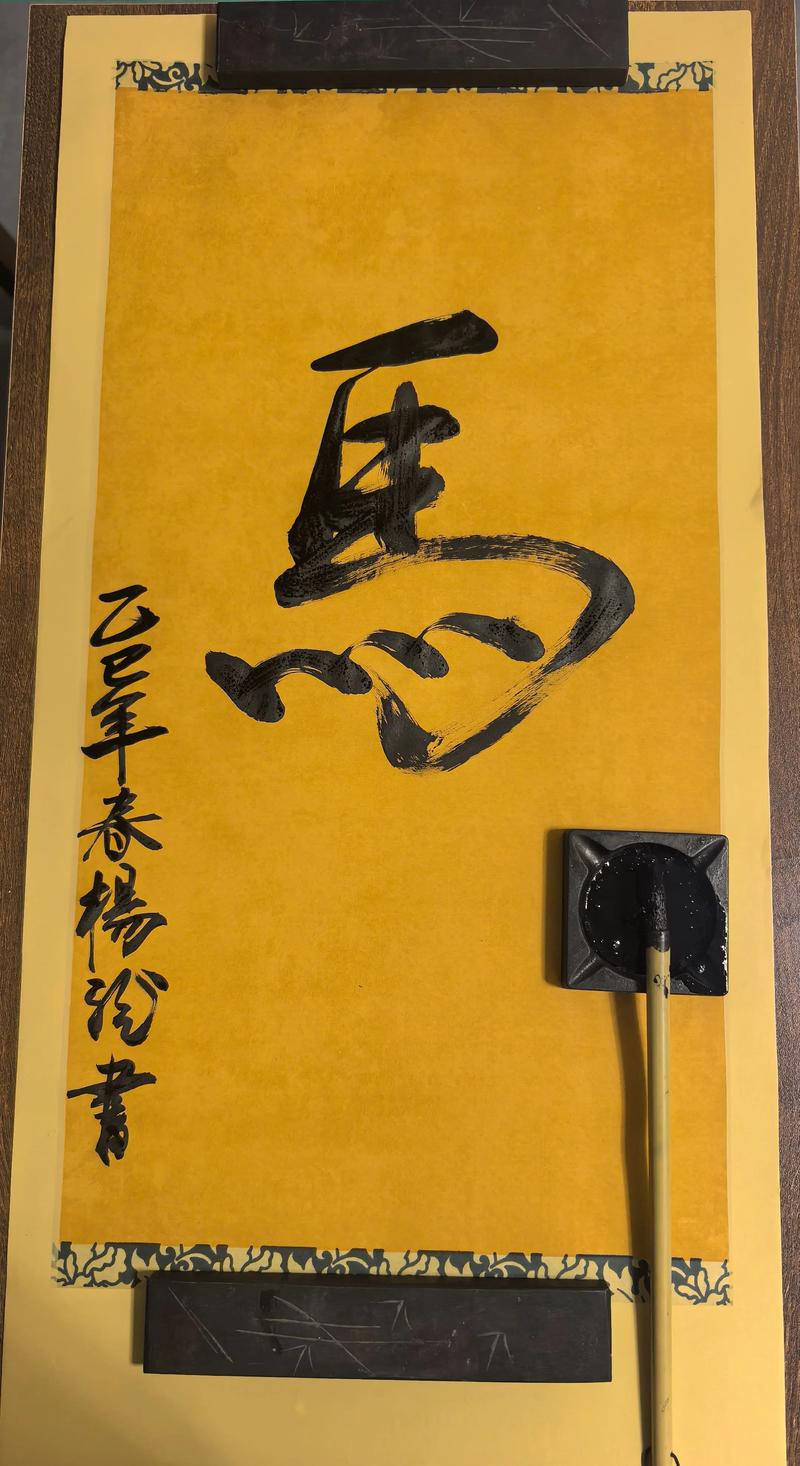 馬
乙巳年春楊 書